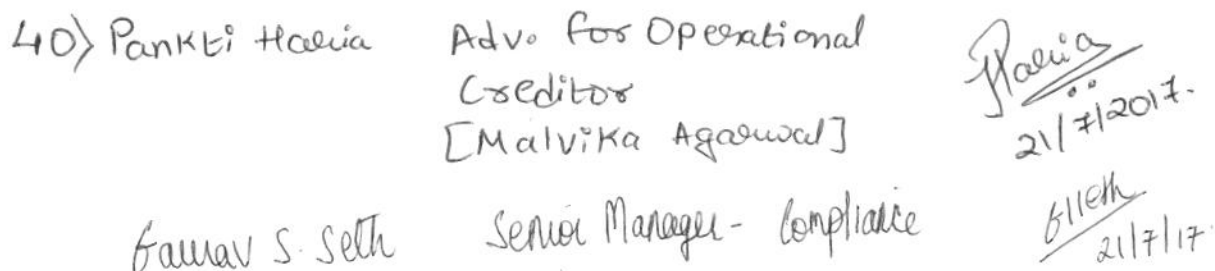 40) Pankti Haria Adv. for Operational
Creditor
[Malvika Agarwal]
Haria
21/7/2017.
Gaurav S. Seth Senior Manager - Compliance
21/7/17